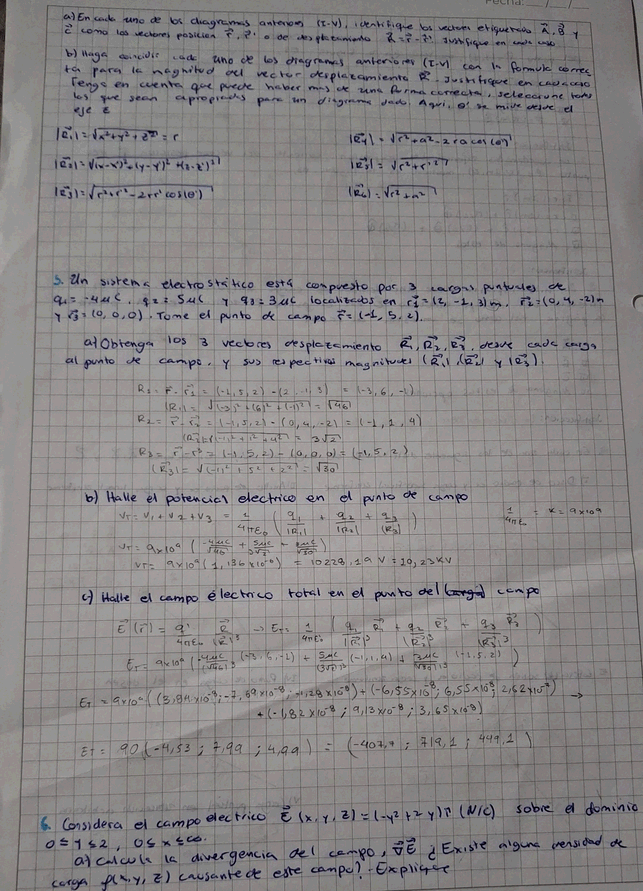 a) En cada uno de los diagramas anteriores (I-V), identifique los vectores etiquetado A⃗, B⃗ y
C⃗ como los vectores posición r⃗, r⃗' o de desplazamiento R⃗ = r⃗ - r⃗'. Justifique en cada caso
b) Haga coincidir cada uno de los diagramas anteriores (I-V) con la formula correc
ta para la magnitud del vector desplazamiento R⃗. Justifique en cada caso
Tenga en cuenta que puede haber mas de una forma correcta, seleccione todas
las que sean apropiadas para un diagrama dado. Aqui, θ' se mide desde el
eje z
|R⃗1| = √x²+y²+z² = r
|R⃗4| = √r²+a²-2ra cos(θ')
|R⃗2| = √(x-x')²+(y-y')²+(z-z')²
|R⃗5| = √r²+r'²
|R⃗3| = √r²+r'²-2rr' cos(θ')
|R⃗6| = √r²+a²
5. Un sistema electrostático está compuesto por 3 cargas puntuales de
q1 = -4μC, q2 = 5μC y q3 = 3μC localizados en r⃗1 = (2, -1, 3)m, r⃗2 = (0, 4, -2)m
y r⃗3 = (0, 0, 0). Tome el punto de campo r⃗ = (-1, 5, 2).
a) Obtenga los 3 vectores desplazamiento R⃗1, R⃗2, R⃗3, desde cada carga
al punto de campo, y sus respectivas magnitudes |R⃗1|, |R⃗2| y |R⃗3|.
R1 = r⃗ - r⃗1 = (-1, 5, 2) - (2, -1, 3) = (-3, 6, -1)
|R1| = √(-3)² + (6)² + (-1)² = √46
R2 = r⃗ - r⃗2 = (-1, 5, 2) - (0, 4, -2) = (-1, 1, 4)
|R2| = √(-1)² + 1² + 4² = 3√2
R3 = r⃗ - r⃗3 = (-1, 5, 2) - (0, 0, 0) = (-1, 5, 2)
|R3| = √(-1)² + 5² + 2² = √30
b) Halle el potencial electrico en el punto de campo
VT = V1 + V2 + V3 = 1/4πε0 (q1/|R1| + q2/|R2| + q3/|R3|)
1/4πε0 = K = 9x10⁹
VT = 9x10⁹ (-4μC/√46 + 5μC/3√2 + 3μC/√30)
VT = 9x10⁹ (1,136x10⁻⁶) = 10228,19 V = 10,23 KV
c) Halle el campo électrico total en el punto del campo
E⃗(r⃗) = q/4πε0 R⃗/|R⃗|³ → ET = 1/4πε0 (q1/|R⃗1|³ R⃗1 + q2/|R⃗2|³ R⃗2 + q3/|R⃗3|³ R⃗3)
ET = 9x10⁹ (-4μC/(√46)³ (-3, 6, -1) + 5μC/(3√2)³ (-1, 1, 4) + 3μC/(√30)³ (-1, 5, 2))
ET = 9x10⁹ ((3,84x10⁻⁸; -7,69x10⁻⁸; 1,28x10⁻⁸) + (-6,55x10⁻⁸; 6,55x10⁻⁸; 2,62x10⁻⁷) →
+ (-1,82x10⁻⁸; 9,13x10⁻⁸; 3,65x10⁻⁸)
ET = 90 (-4,53; 7,99; 4,99) = (-407,7; 719,1; 449,1)
6. Considera el campo electrico E⃗ (x, y, z) = (-y²+2y) î (N/C) sobre el dominio
0 ≤ y ≤ 2, 0 ≤ x ≤ ∞.
a) calcule la divergencia del campo, ∇⃗E⃗ ¿Existe alguna densidad de
carga ρ(x, y, z) causante de este campo? Explique